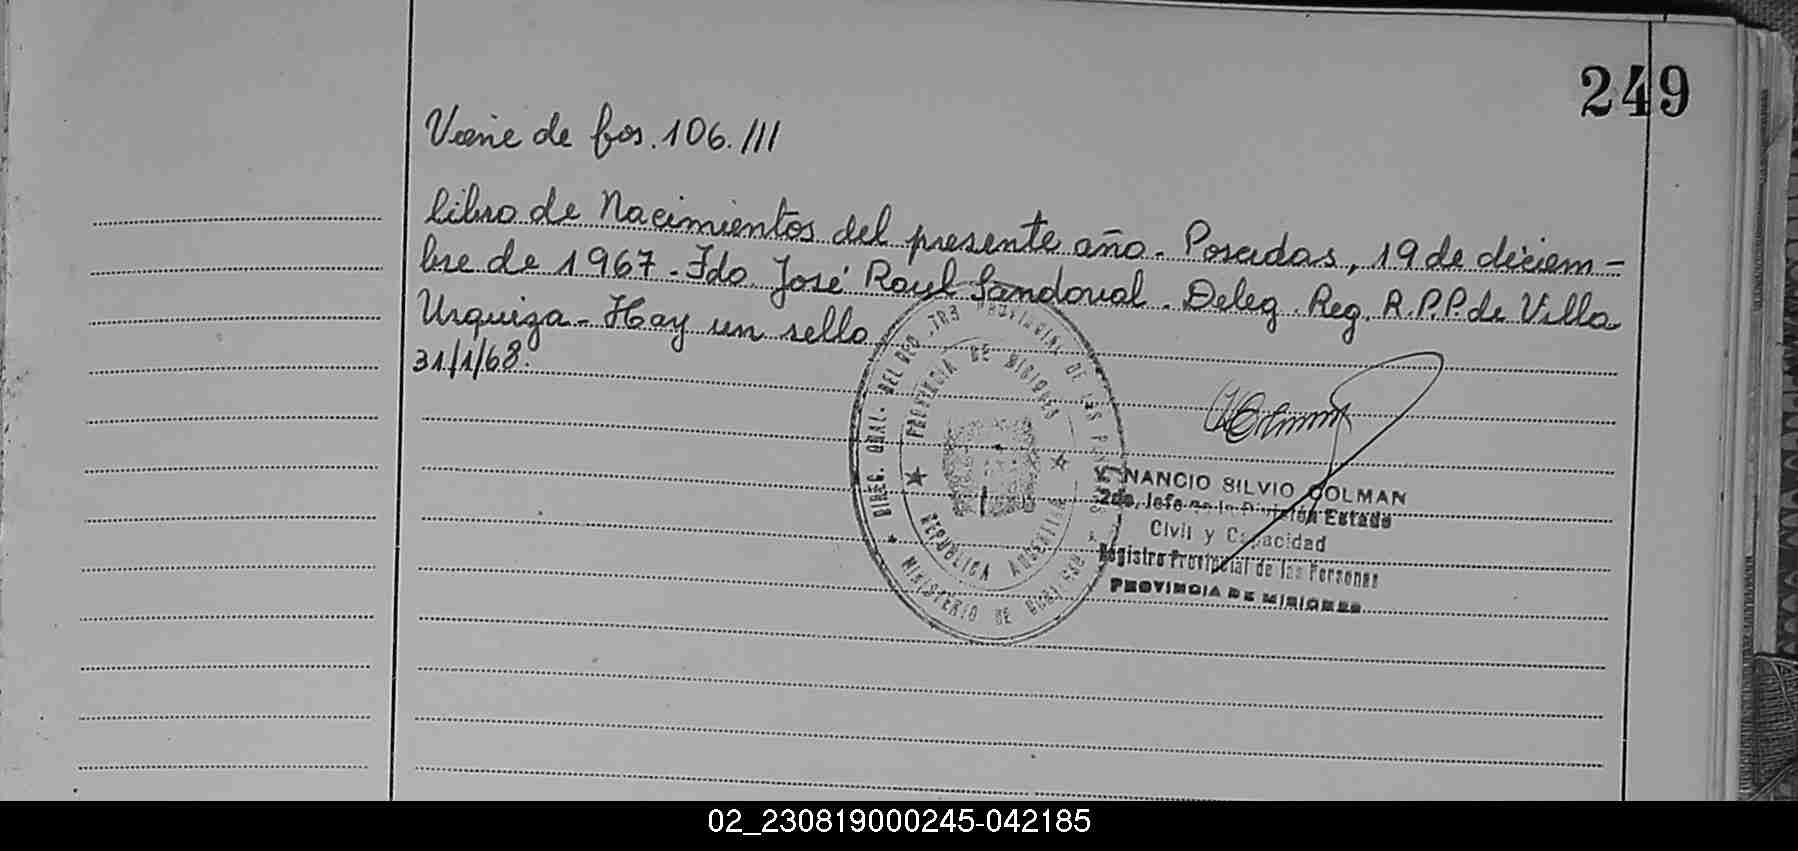 249
Viene de fos. 106. ///
libro de Nacimientos del presente año. Posadas, 19 de diciem-
bre de 1967. Fdo. José Raul Sandoval. Deleg. Reg. R.P.P. de Villa
Urquiza - Hay un sello
31/1/68.
DIREC. GRAL. DEL REG. PROVINCIAL DE LAS PERSONAS
PROVINCIA DE MISIONES
REPUBLICA ARGENTINA
MINISTERIO DE GOBIERNO
VENANCIO SILVIO COLMAN
2do. Jefe de la División Estado
Civil y Capacidad
Registro Provincial de las Personas
PROVINCIA DE MISIONES
02_230819000245-042185